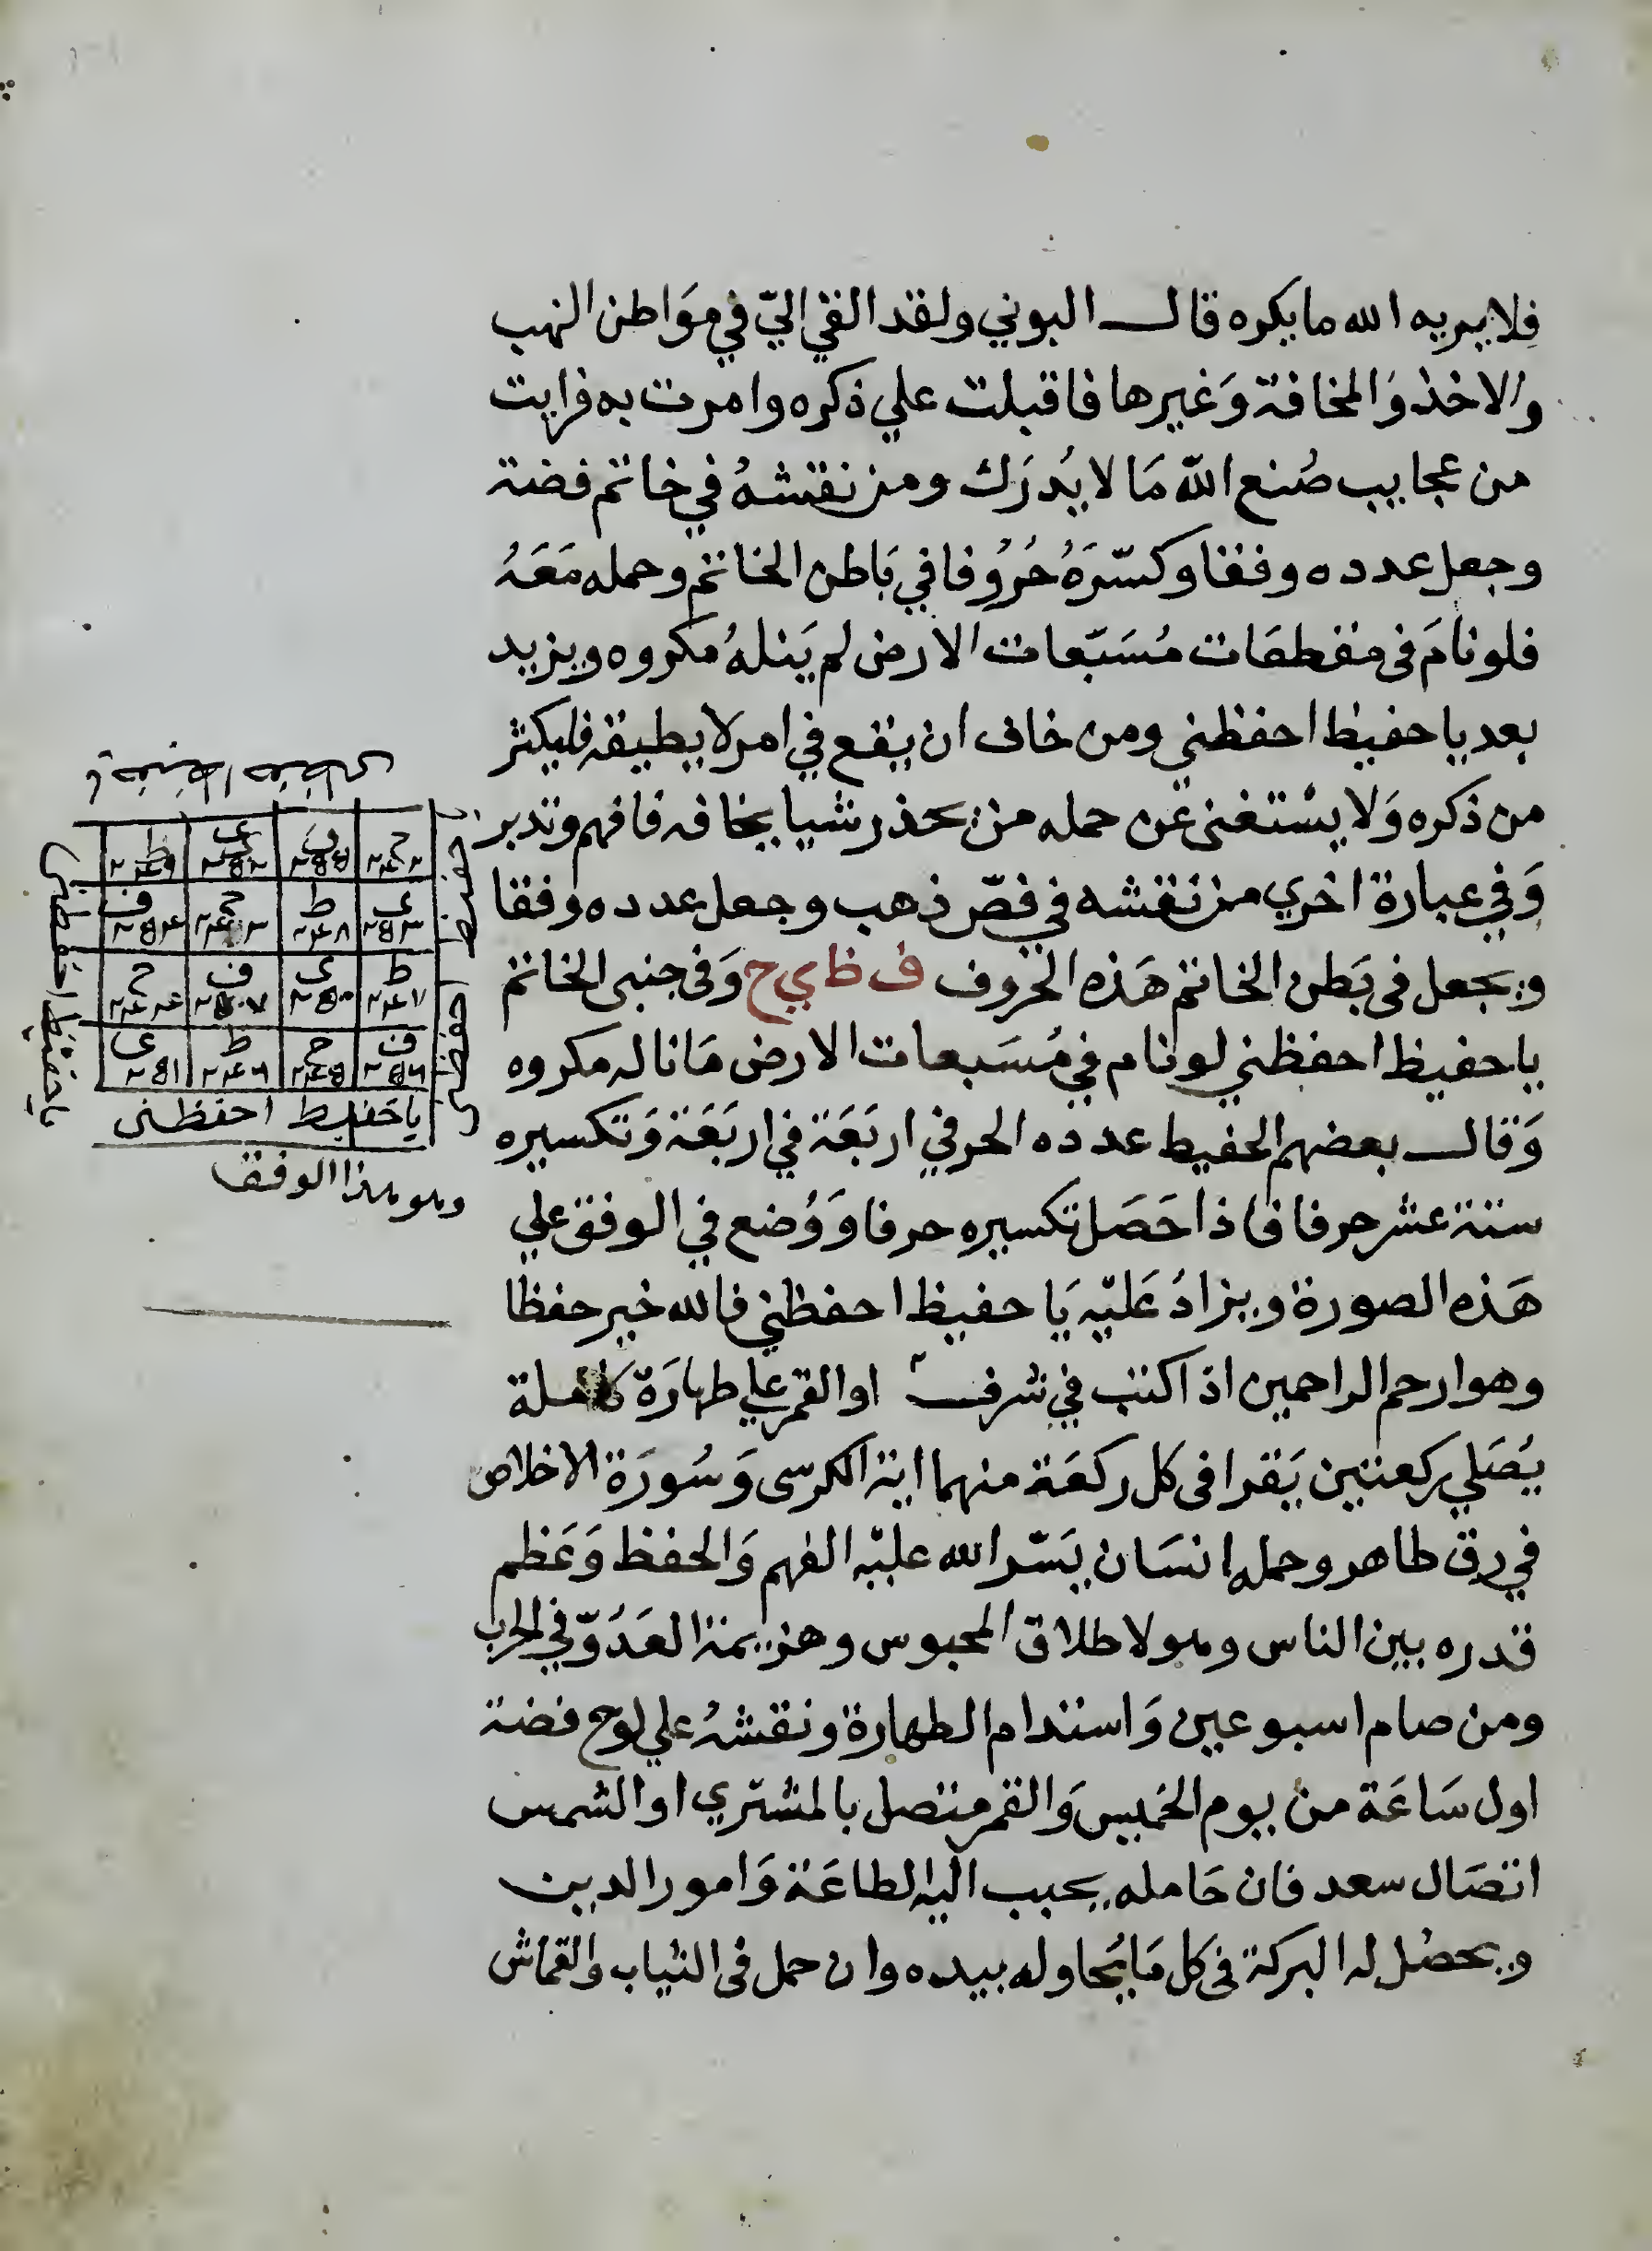 فلا يريه الله ما يكره قال البوني ولقد القي اليّ في مَوَاطن النهب
والاخذ وَالمخافة وَغيرها فاقبلت علي ذكره وامرت به فرايت
من عجايب صُنع اللّه مَا لا يُدرَك ومن نقشهُ في خاتم فضة
وجعل عدده وفقا وكسّرَهُ حُرُوفا في بَاطن الخاتم وحمله مَعَهُ
فلو نامَ فى مسَبّعات الارض لم يَنلهُ مكروه ويزيد
بعد يا حفيظ احفظني ومن خاف ان يقع في امر لا يطيقه فليكثر
من ذكره وَلا يسْتغنى عَن حمله من يحذر شيا يخافه فافهم وتدبر
وَفي عبارة اخري من نقشه في فصّ ذهب وجعل عدده وفقا
ويجعل فى بَطن الخاتم هَذه الحُروف ف ظ ي ح وَفى جنبى الخاتم
يا حفيظ احفظني لو نام في مُسَبعات الارض مَا ناله مكروه
وَقال بعضهم الحفيظ عدده الحرفي اربَعَة في اربَعَة وَتكسيره
ستة عشر حرفا فاذا حَصَل تكسيره حرفا وَوُضع في الوفق علي
هَذه الصورة ويزادُ عَليْه يَا حفيظ احفظني فالله خير حفظا
وهو ارحم الراحمين اذا كتب في شرف او القمر علي طهارَة كاملة
يُصَلي ركعتين يَقرا فى كل ركعَة منهما اية الكرسى وَسُورَة الاخلاص
في رق طاهر وحمله انسَان يَسّر الله عليْه الفهم وَالحفظ وَعَظم
قدره بين الناس وهو لاطلاق المحبوس وهزيمة العَدُوّ في الحرب
ومن صام اسبوعين وَاستدام الطهارة ونقشهُ علي لوح فضة
اول سَاعَة من يوم الخميس وَالقمر متصل بالمشتري او الشمس
اتصَال سعد فان حَامله يحبب اليْه الطاعَة وَامور الدين
ويحصُل له البركة فى كل مَا يُحاوله بيده وان حمل فى الثياب والقماش
يا حفيظ احفظنى
ح ف ى ظ
٢٤٢ ٢٥٥ ٢٥٢ ٢٤٩
ى ظ ح ف
٢٥٣ ٢٤٨ ٢٤٣ ٢٥٤
ظ ى ف ح
٢٤٧ ٢٥٠ ٢٥٧ ٢٤٤
ف ح ظ ى
٢٥٦ ٢٤٥ ٢٤٦ ٢٥١
يا حفيظ احفظنى
يا حفيظ احفظنى
يا حفيظ احفظنى
وهو هذا الوفق